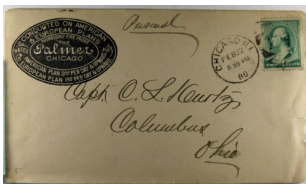 CONDUCTED ON AMERICAN
& EUROPEAN PLANS
THE
Palmer
CHICAGO
AMERICAN PLAN
EUROPEAN PLAN
Personal
CHICAGO, ILL.
FEB 22
8 30 PM
88
Capt. C. L. Kurtz,
Columbus
Ohio